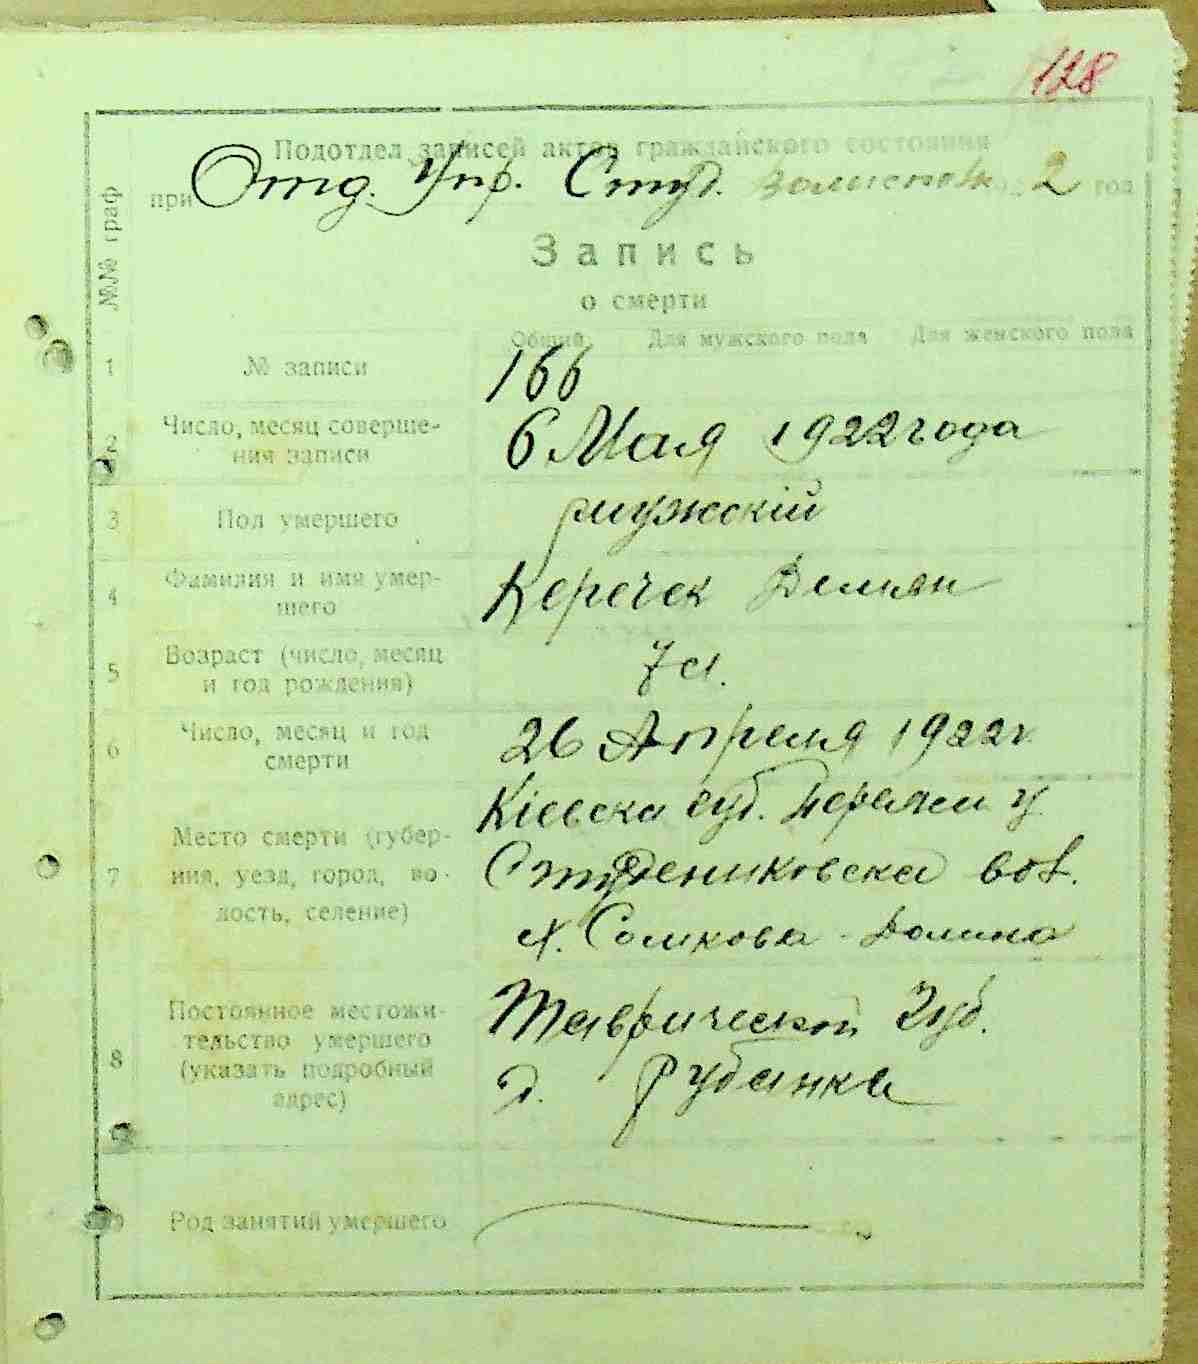 128
Подотдел записей актов гражданского состояния
при Отд. Упр. Студ. 2 год
№№ граф
Запись
о смерти
Общий Для мужского пола Для женского пола
1 № записи 166
2 Число, месяц соверше-
ния записи 6 Мая 1922 года
3 Пол умершего мужскій
4 Фамилия и имя умер-
шего Керечек Демьян
5 Возраст (число, месяц
и год рождения) 7 л.
6 Число, месяц и год
смерти 26 Апреля 1922 г.
7 Место смерти (губер-
ния, уезд, город, во-
лость, селение)
Кіевска губ. Переясл у.
Студениковска вол.
х. Сомкова-Долина
8 Постоянное местожи-
тельство умершего
(указать подробный
адрес)
Таврической Губ.
д. Рубанка
Род занятий умершего